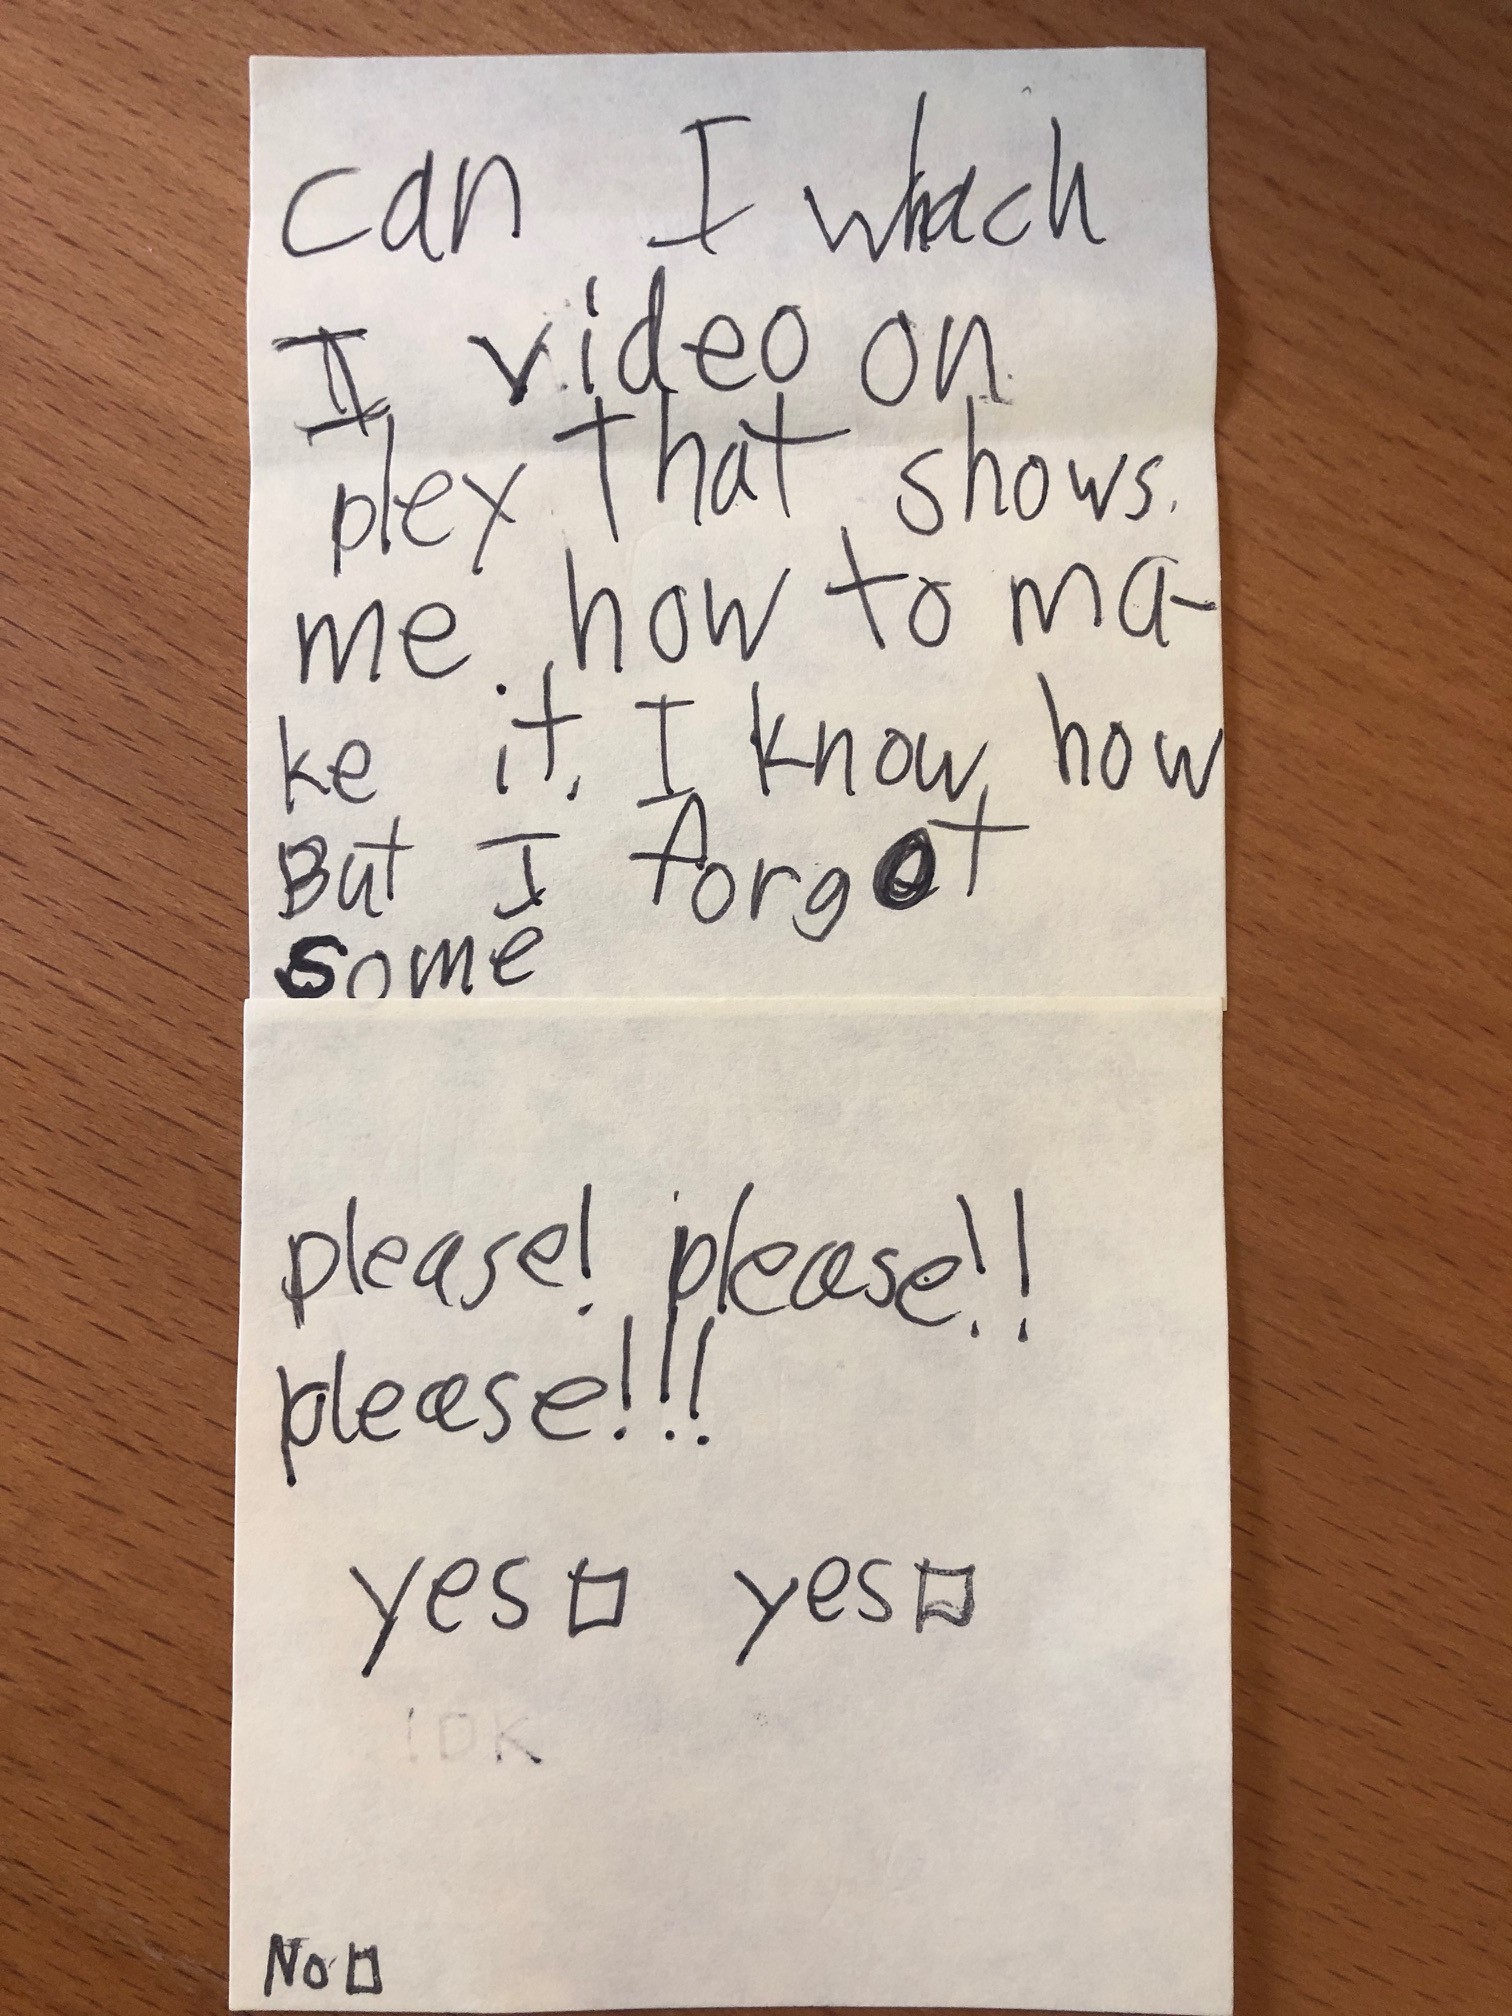 can I whach
I video on
plex that shows.
me how to ma-
ke it. I know how
But I forgot
some
please! please!!
please!!!
yes☐ yes☐
IDK
No☐